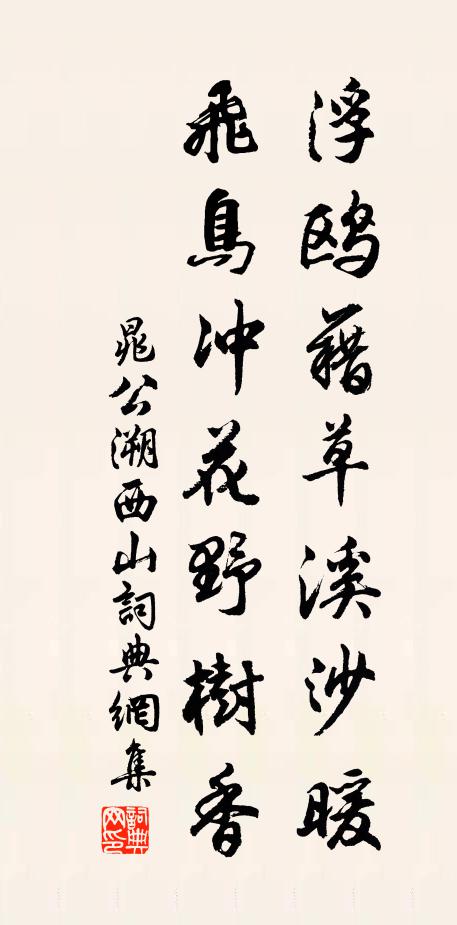 浮鸥藉草溪沙暖
飛鳥冲花野樹香
晁公溯西山詞典網集
詞典网印